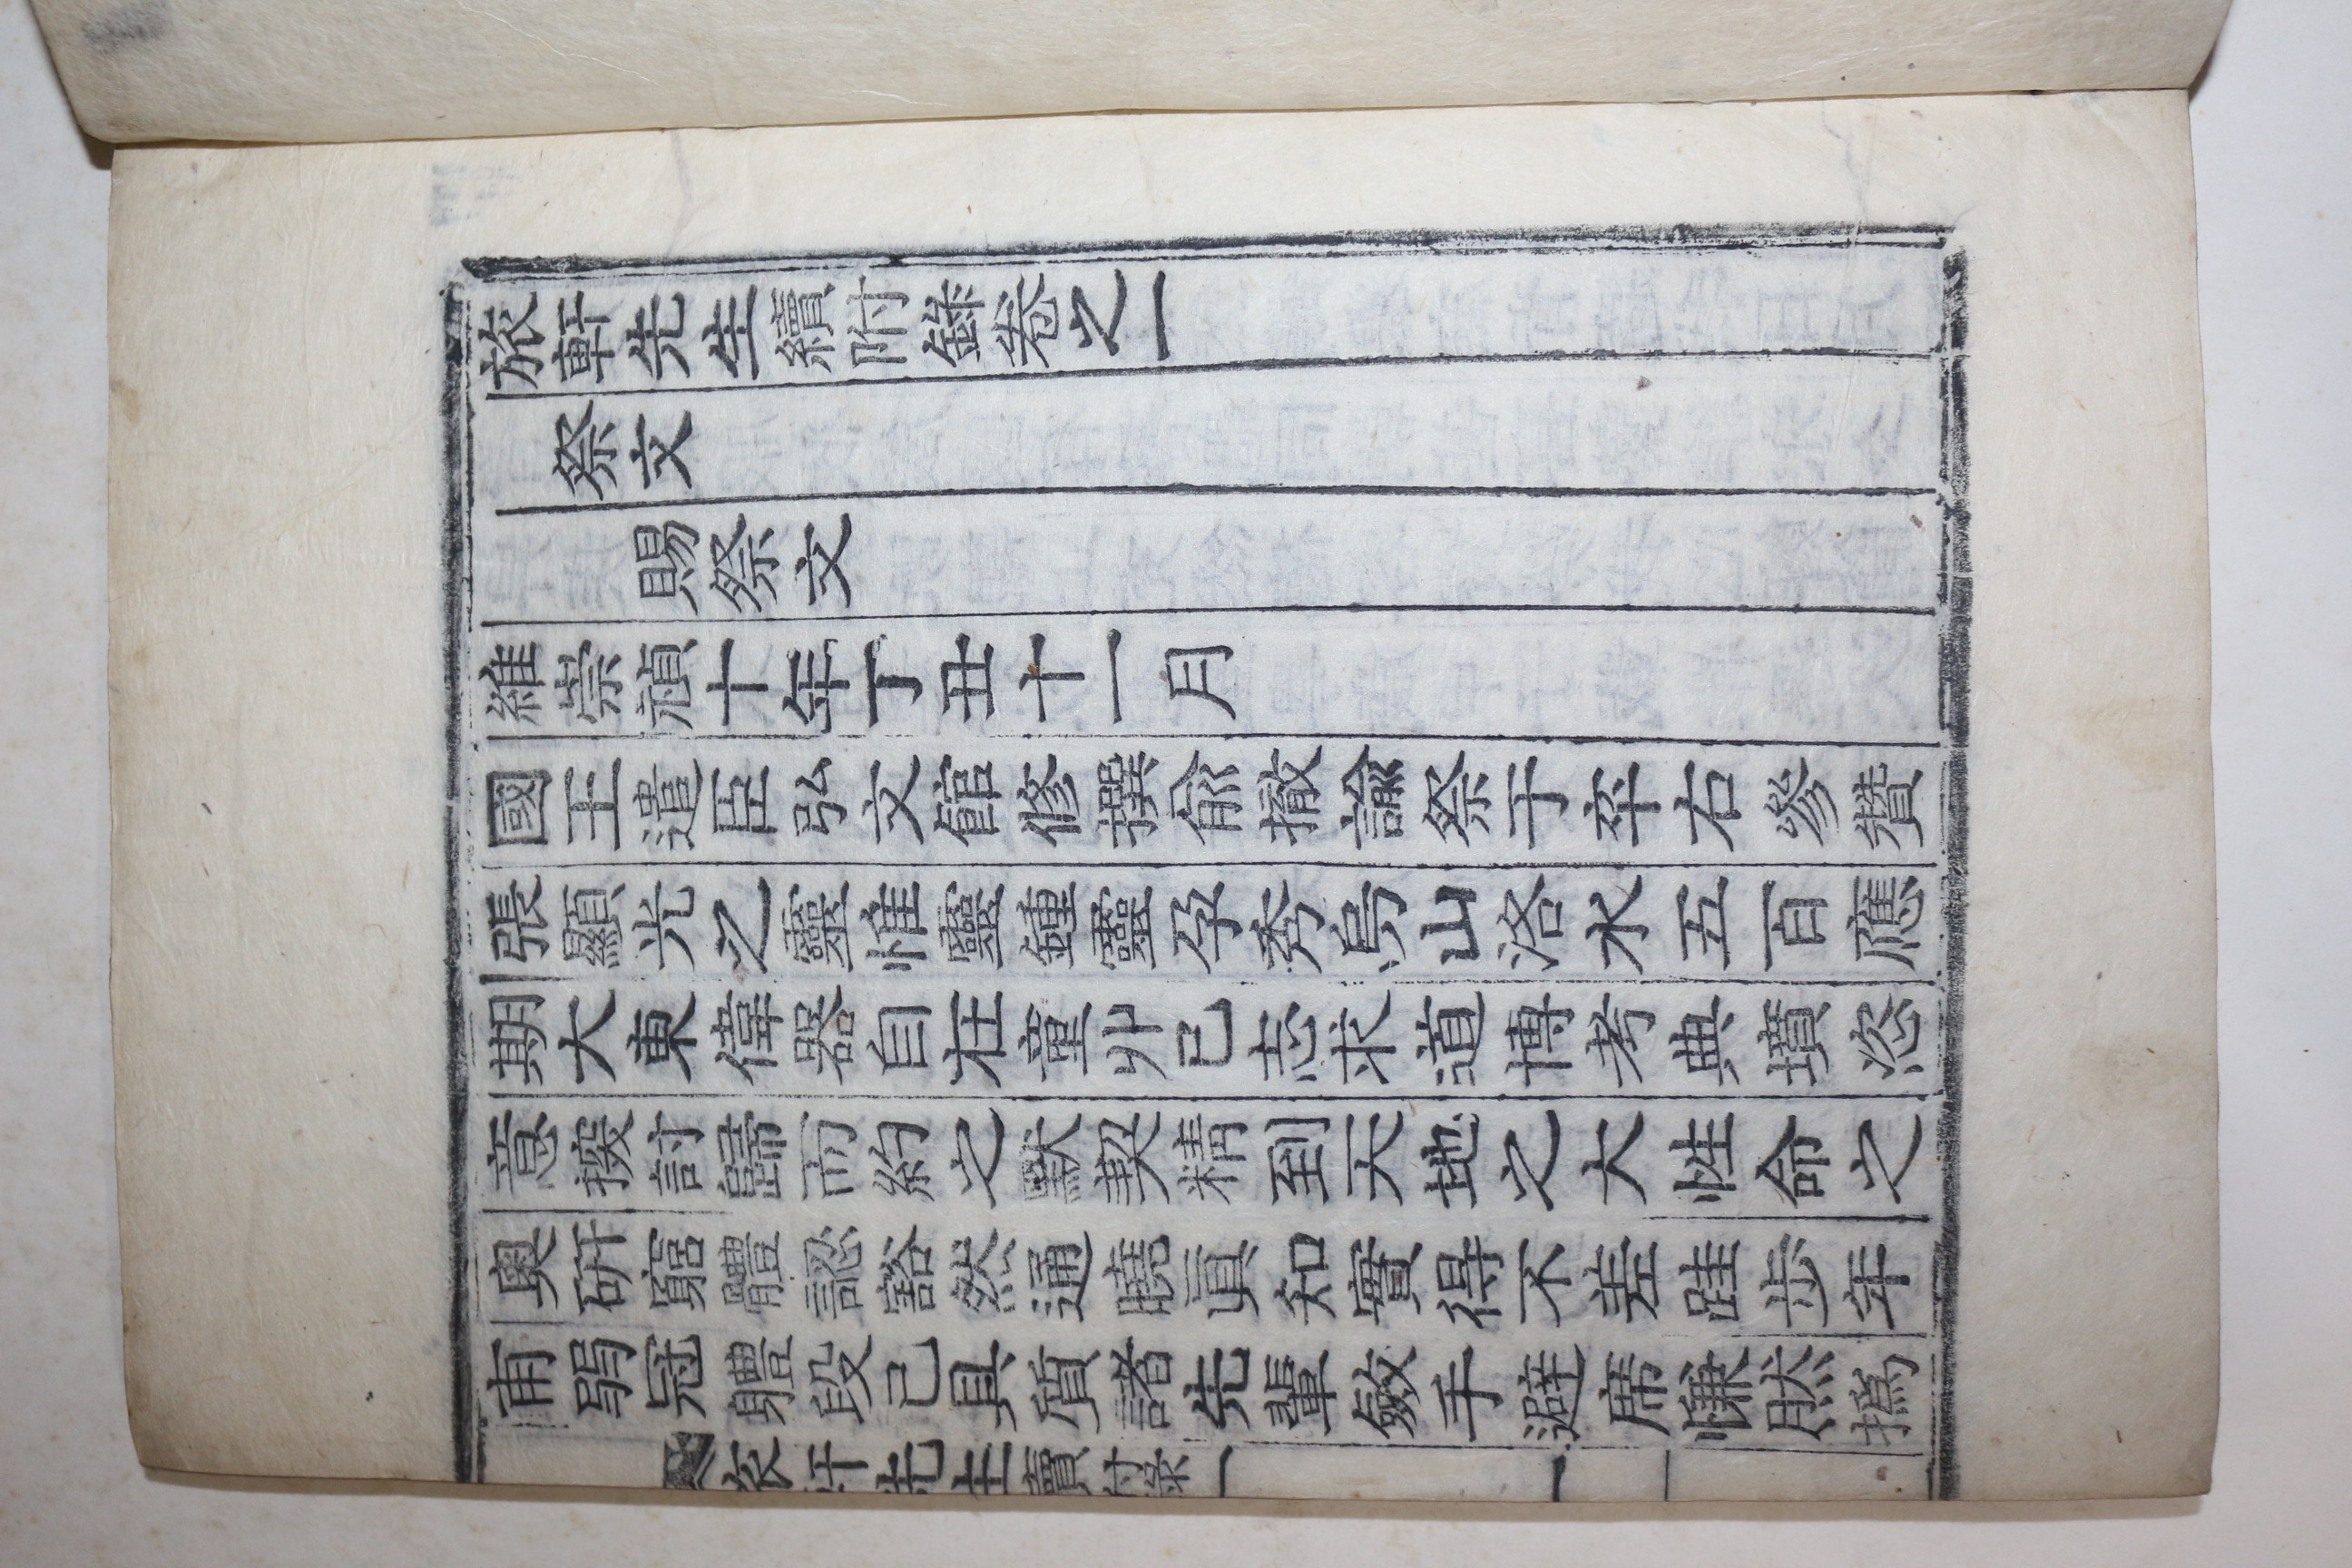 旅軒先生續附錄卷之一
祭文
賜祭文
維崇禎十年丁丑十一月
國王遣臣弘文館修撰兪撤諭祭于卒右參贊
張顯光之靈惟靈鍾靈孕秀烏山洛水五百應
期大東偉器自在童丱已志求道博考典墳恣
意探討歸而約之默契精到天地之大性命之
奧硏窮體認豁然通曉眞知實得不差跬步年
甫弱冠軆段己具質諸先輩斂手避席慊然撝
旅軒先生續付錄 一 一